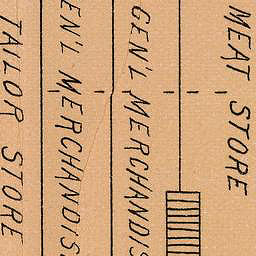 MEAT STORE
GEN'L MERCHANDIS
EN'L MERCHANDIS
TAILOR STORE